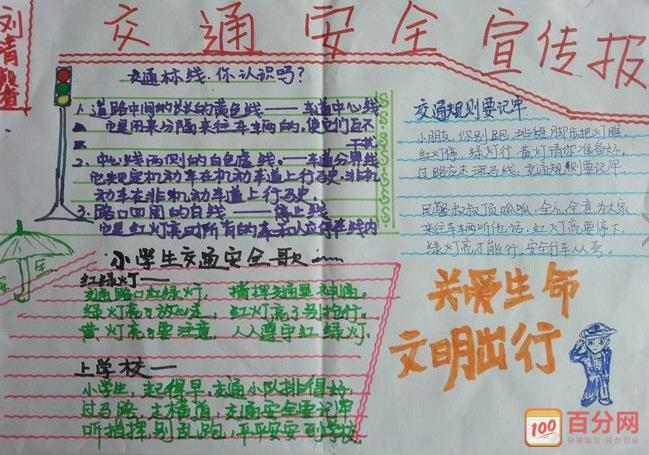 交通安全宣传报
交通标线,你认识吗?
1.道路中间的长长的黄色线——车道中心线
它是用来分隔来往车辆的,使它们互不
干扰
2.中心线两侧的白色虚线。——车道分界线
它规定机动车在机动车道上行驶,非机
动车在非机动车道上行驶
3.路口四周的白线——停止线
它是红灯亮时所有的车和人应停在线内
小学生交通安全歌
红绿灯——
交通路口红绿灯, 指挥交通
绿灯亮了 走, 红灯亮了别抢行。
黄灯亮了要注意, 人人遵守红绿灯。
上学校——
小学生,起得早,交通小队排得好
过马路,走横道,交通安全要记牢
听指挥,别乱跑,平平安安到学校
交通规则要记牢
小朋友,你别跑, 脚步把灯瞧
红灯停,绿灯行,黄灯请你准备好
过路应走斑马线,交通规则要记牢
民警叔叔顶呱呱,全心全意为大家
来往车辆听他话,红灯亮要停下
绿灯亮才能行,安全行车人人夸。
关爱生命
文明出行
100
百分网